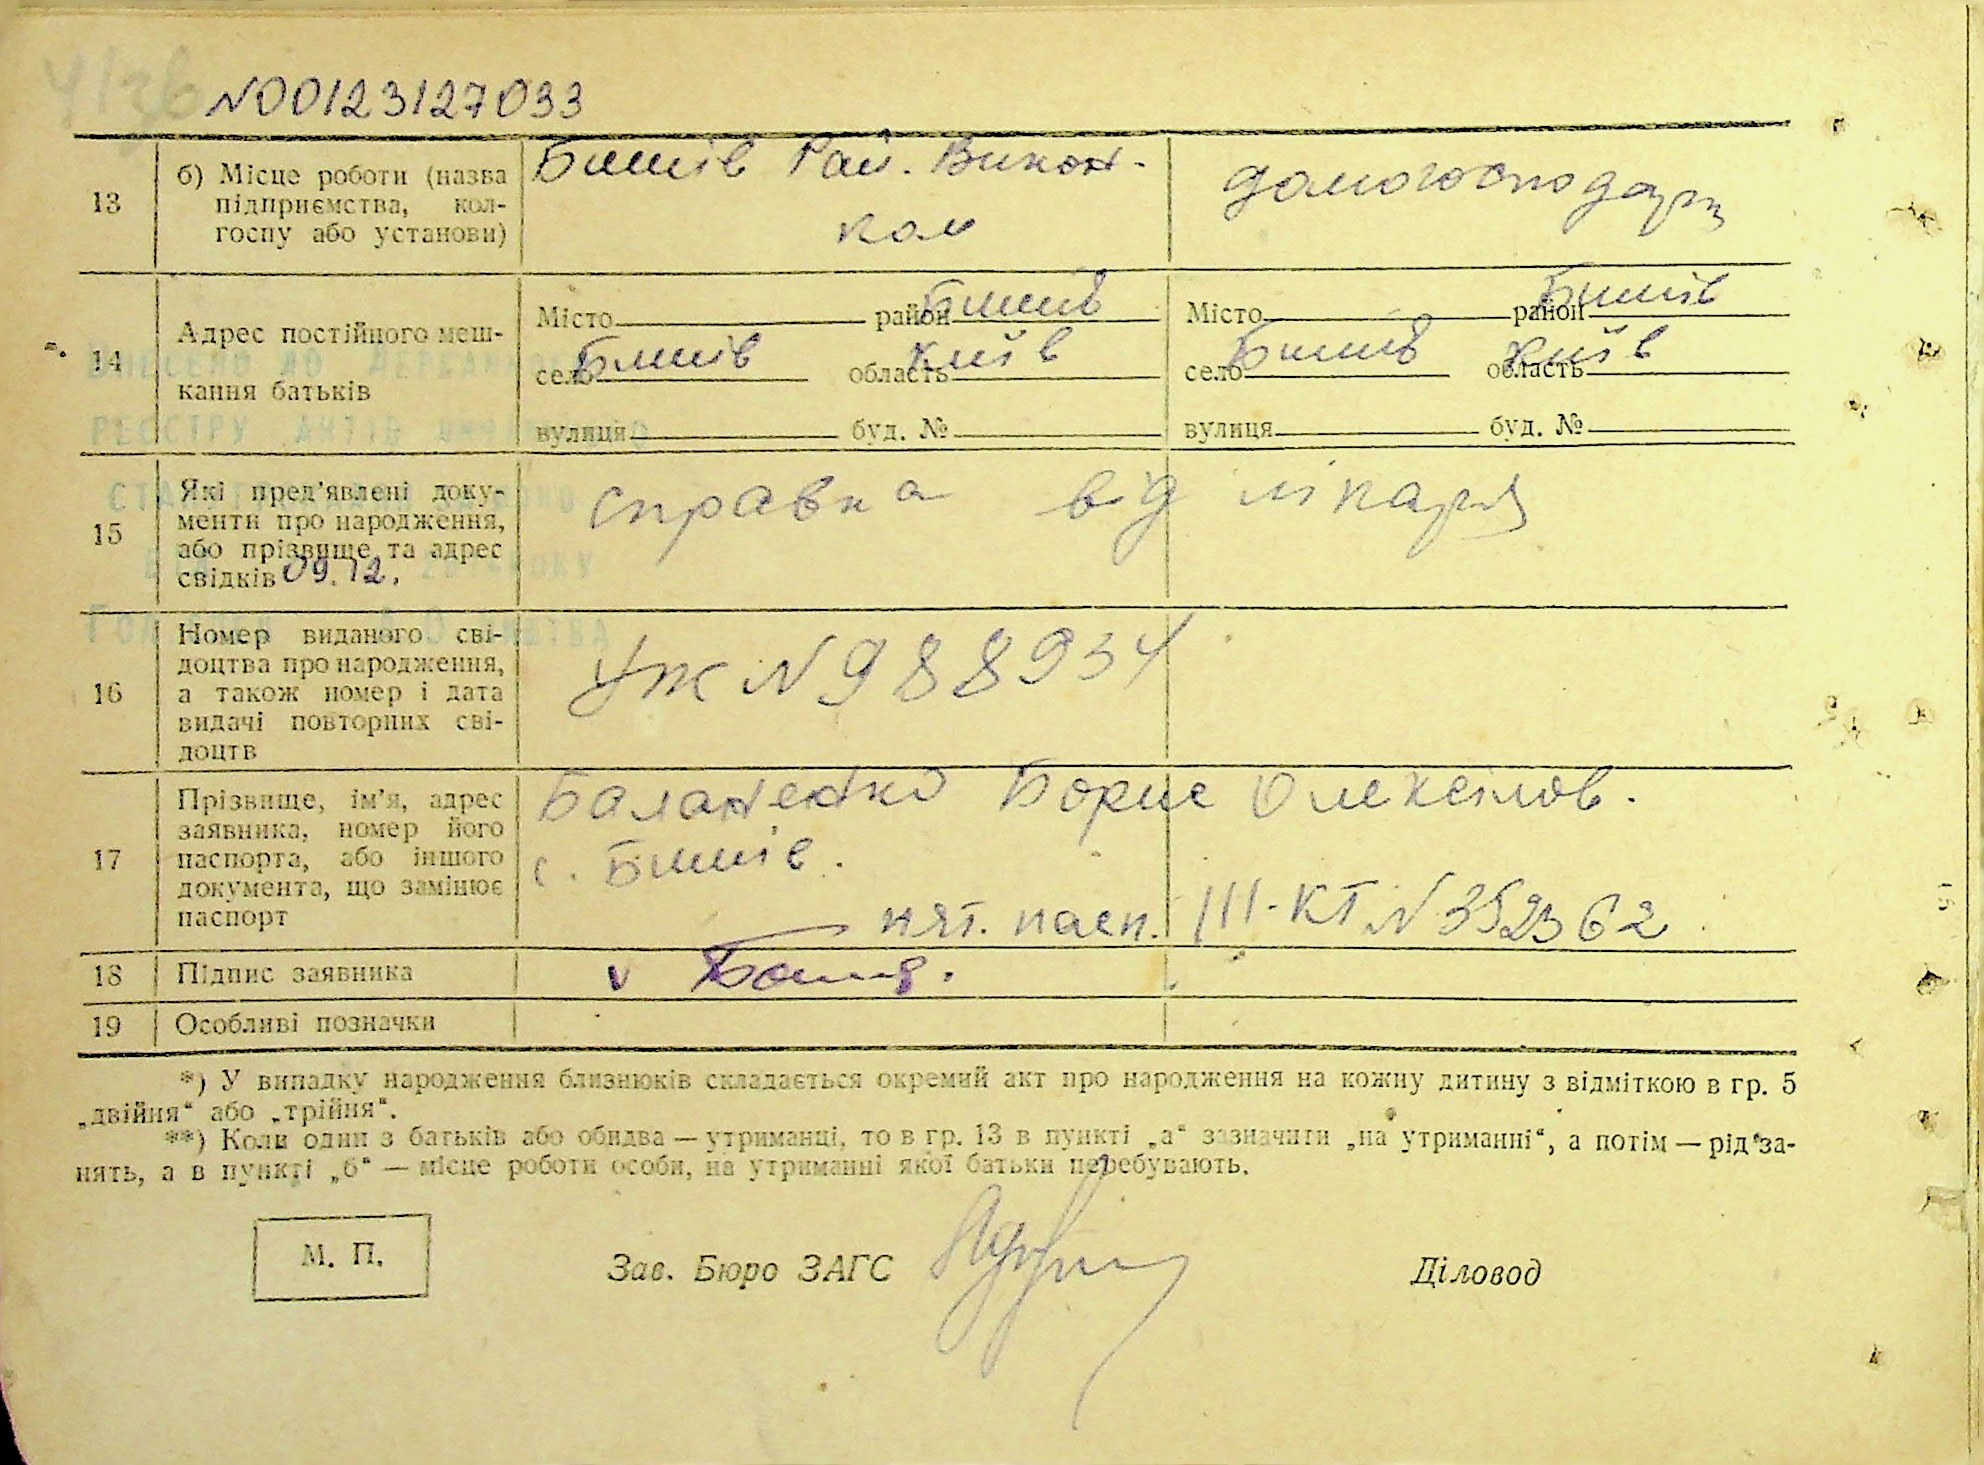 N00123127033
13
б) Місце роботи (назва
підприємства, кол-
госпу або установи)
Бишів Рай. Викон-
ком
домогосподарц
14
Адрес постійного меш-
кання батьків
Місто район Бишів
село Бишів область Київ
вулиця буд. №
Місто район Бишів
село Бишів область Київ
вулиця буд. №
15
Які пред'явлені доку-
менти про народження,
або прізвище та адрес
свідків 09.12.
справка від лікаря
16
Номер виданого сві-
доцтва про народження,
а також номер і дата
видачі повторних сві-
доцтв
УЖ N 988934
17
Прізвище, ім'я, адрес
заявника, номер його
паспорта, або іншого
документа, що замінює
паспорт
Баланенко Борис Олексійов.
с. Бишів.
пят. пасп. III-КТ N 352362
18
Підпис заявника
v
19
Особливі позначки
*) У випадку народження близнюків складається окремий акт про народження на кожну дитину з відміткою в гр. 5
„двійня“ або „трійня“.
**) Коли один з батьків або обидва — утриманці, то в гр. 13 в пункті „а“ зазначити „на утриманні“, а потім — рід за-
нять, а в пункті „б“ — місце роботи особи, на утриманні якої батьки перебувають.
М. П.
Зав. Бюро ЗАГС
Діловод